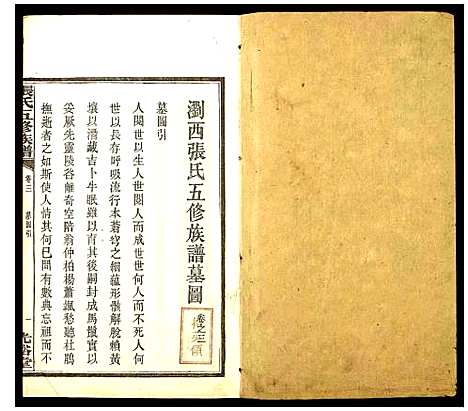 瀏西張氏五修族譜墓圖
卷之三
墓圖引
人閱世以生人世閱人而成世世何人而不死人何
世以長存呼吸流行本蒼穹之絪縕形骸解脫賴黃
壤以潛藏吉卜牛眠雖以育其後嗣封成馬鬣實以
妥厥先靈陵谷離奇空階翁仲柏楊蕭颯愁聽杜鵑
撫逝者之如斯使人情其何已間有數典忘祖而不
張氏五修族譜
卷三
墓圖引
一
光裕堂